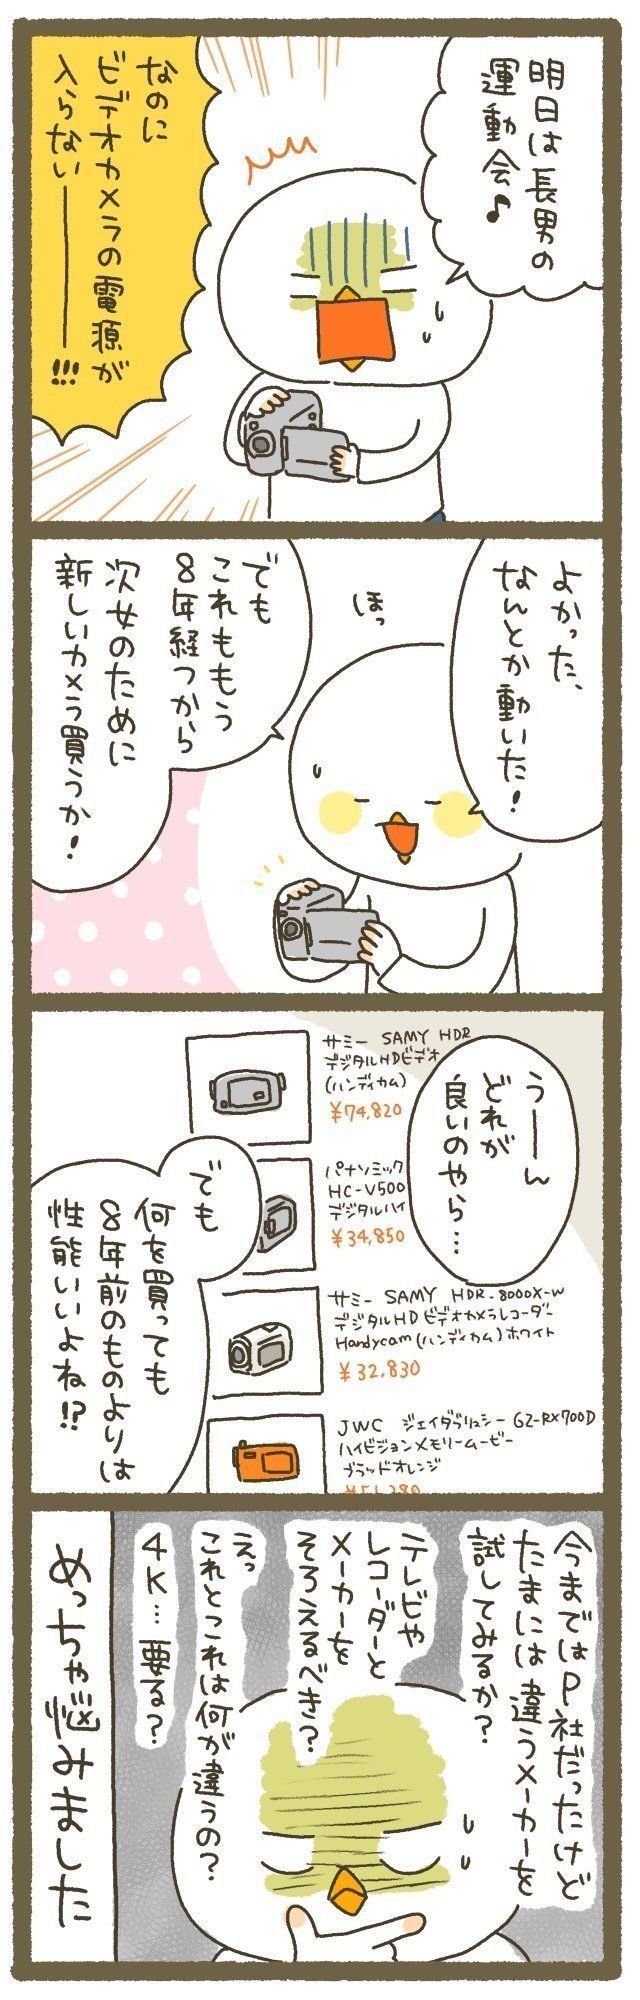 明日は長男の
運動会♪
なのに
ビデオカメラの電源が
入らないーーー!!!
よかった、
なんとか動いた!
ほっ
でも
これももう
8年経つから
次女のために
新しいカメラ買うか!
うーーん
どれが
良いのやら…
サミー SAMY HDR
デジタルHDビデオ
(ハンディカム)
¥74,820
パナソミック
HC-V500
デジタルハイ
¥34,850
サミー SAMY HDR-8000X-W
デジタルHDビデオカメラレコーダー
Handycam(ハンディカム)ホワイト
¥32,830
JWC ジェイダブリュシー GZ-RX700D
ハイビジョンメモリームービー
ブラッドオレンジ
でも
何を買っても
8年前のものよりは
性能いいよね!?
今まではP社だったけど
たまには違うメーカーを
試してみるか?
テレビや
レコーダーと
メーカーを
そろえるべき?
えっ
これとこれは何が違うの?
4K…要る?
めっちゃ悩みました